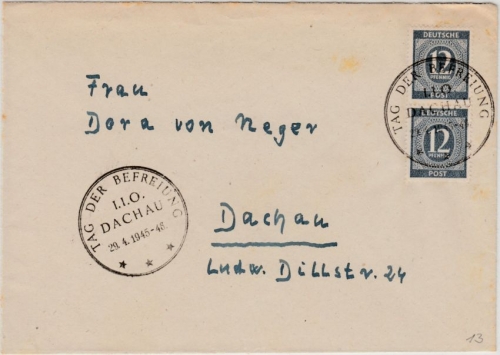 DEUTSCHE
12
PFENNIG
POST
TAG DER BEFREIUNG
I.I.O.
DACHAU
DEUTSCHE
12
PFENNIG
POST
Frau
Dora von Neger
TAG DER BEFREIUNG
I.I.O.
DACHAU
29.4.1945-48
Dachau
Ludw. Dillstr. 24
13